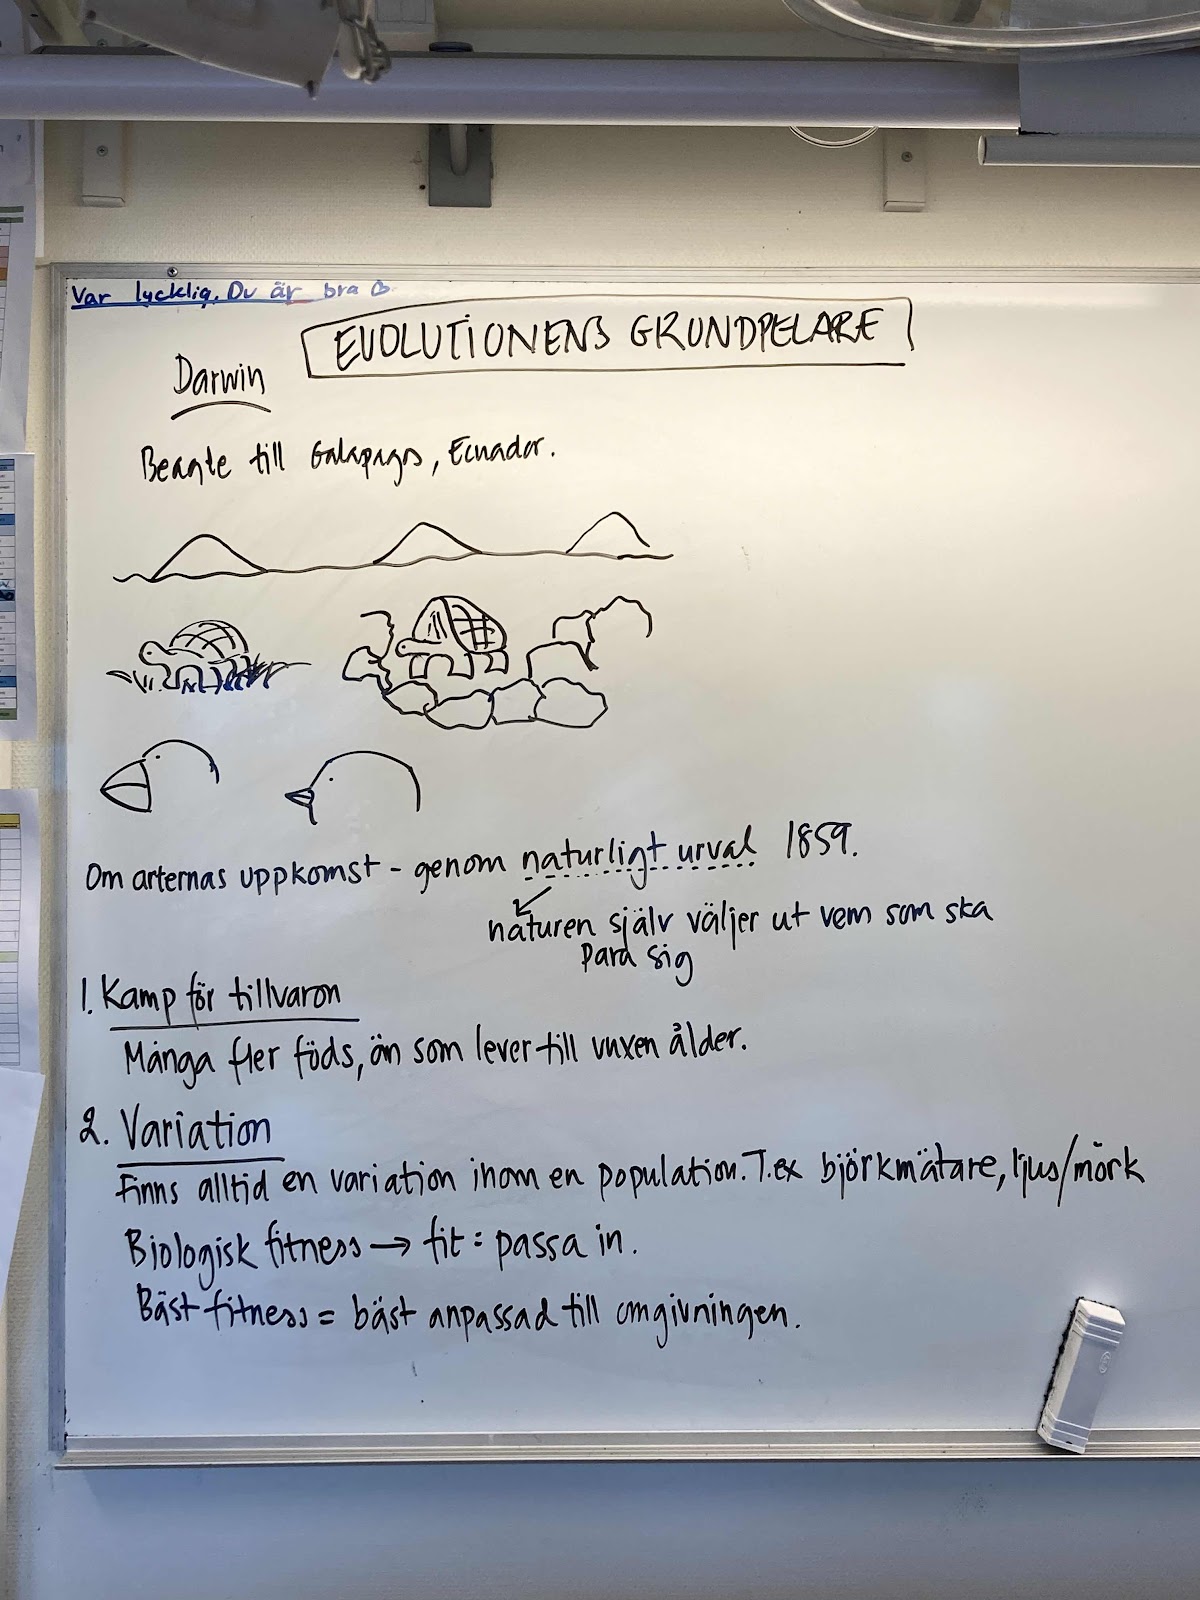 Var lycklig. Du är bra
EVOLUTIONENS GRUNDPELARE
Darwin
Beagle till Galapagos, Ecuador.
Om arternas uppkomst - genom naturligt urval 1859.
naturen själv väljer ut vem som ska
para sig
1. Kamp för tillvaron
Många fler föds, än som lever till vuxen ålder.
2. Variation
Finns alltid en variation inom en population. T.ex björkmätare, ljus/mörk
Biologisk fitness → fit = passa in.
Bäst fitness = bäst anpassad till omgivningen.